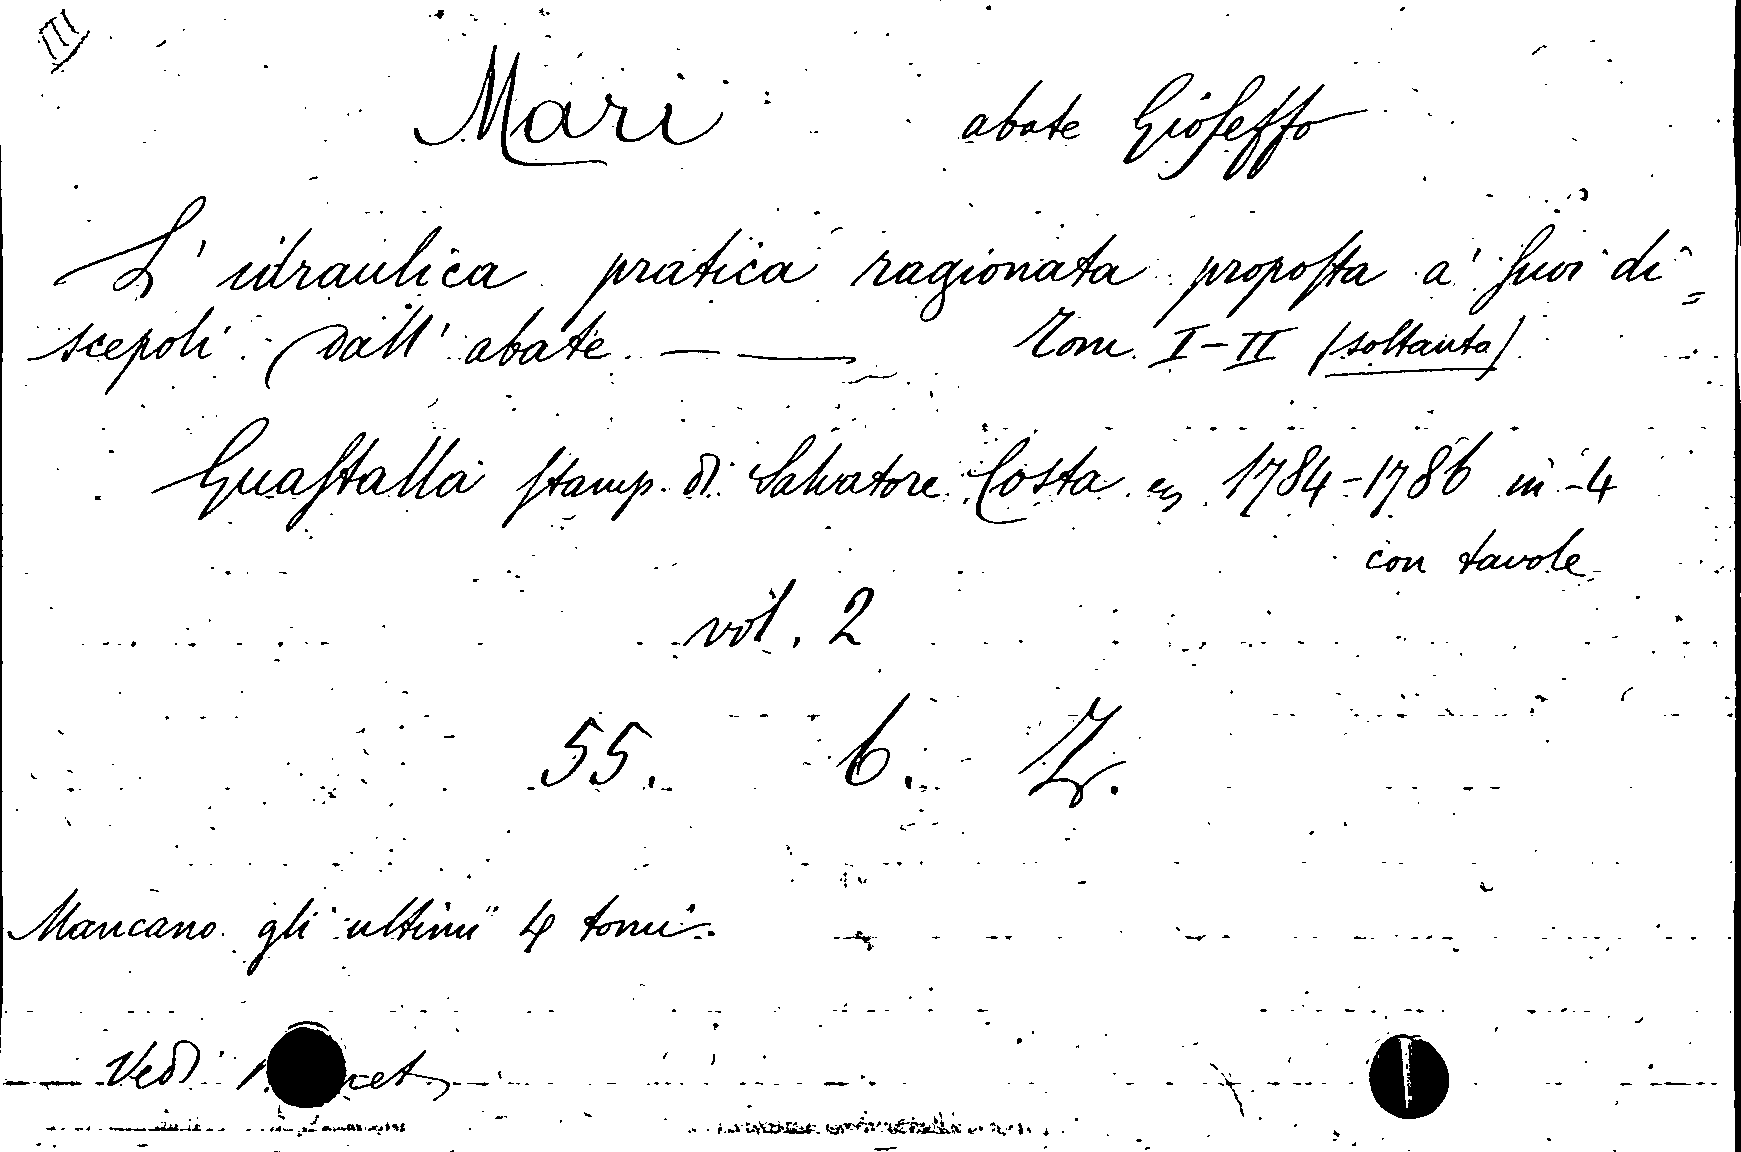 III
Mari abate Gioseffo
L' idraulica pratica ragionata proposta a' suoi di=
scepoli dall' abate — — Tom. I-II (soltanto)
Guastalla stamp. di Salvatore Costa e 1784-1786 in-4
con tavole
vol. 2
55. 6. Z.
Mancano gli ultimi 4 tomi.
Vedi